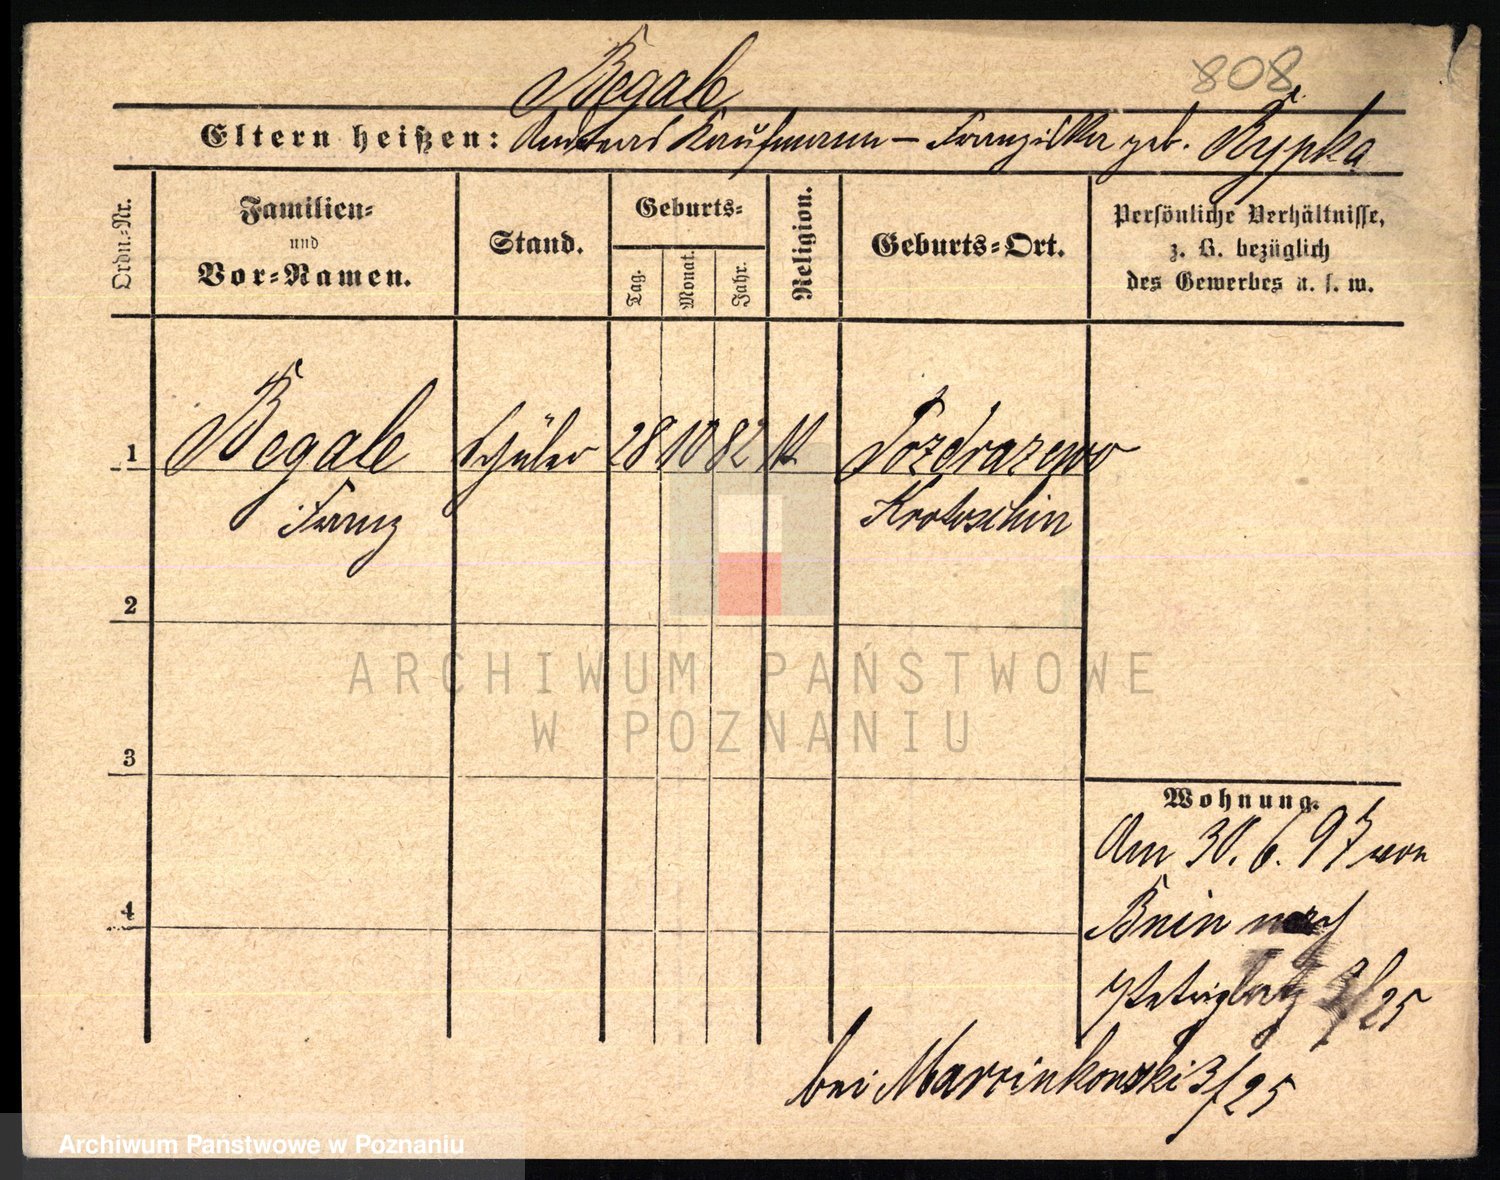 Begale
808
Eltern heißen: Andreas Kaufmann – Franziska geb. Rypka
Ordn.-Nr.
Familien-
und
Vor-Namen.
Stand.
Geburts-
Tag.
Monat.
Jahr.
Religion.
Geburts-Ort.
Persönliche Verhältnisse,
z. B. bezüglich
des Gewerbes u. s. w.
1 Begale Schüler 28 10 82 k Rozdrazewo
Franz Krotoschin
2
3
4
Wohnung.
Am 30. 6. 97 von
Bnin nach
3/25
bei Marcinkowski 3/25
ARCHIWUM PAŃSTWOWE
W POZNANIU
Archiwum Państwowe w Poznaniu